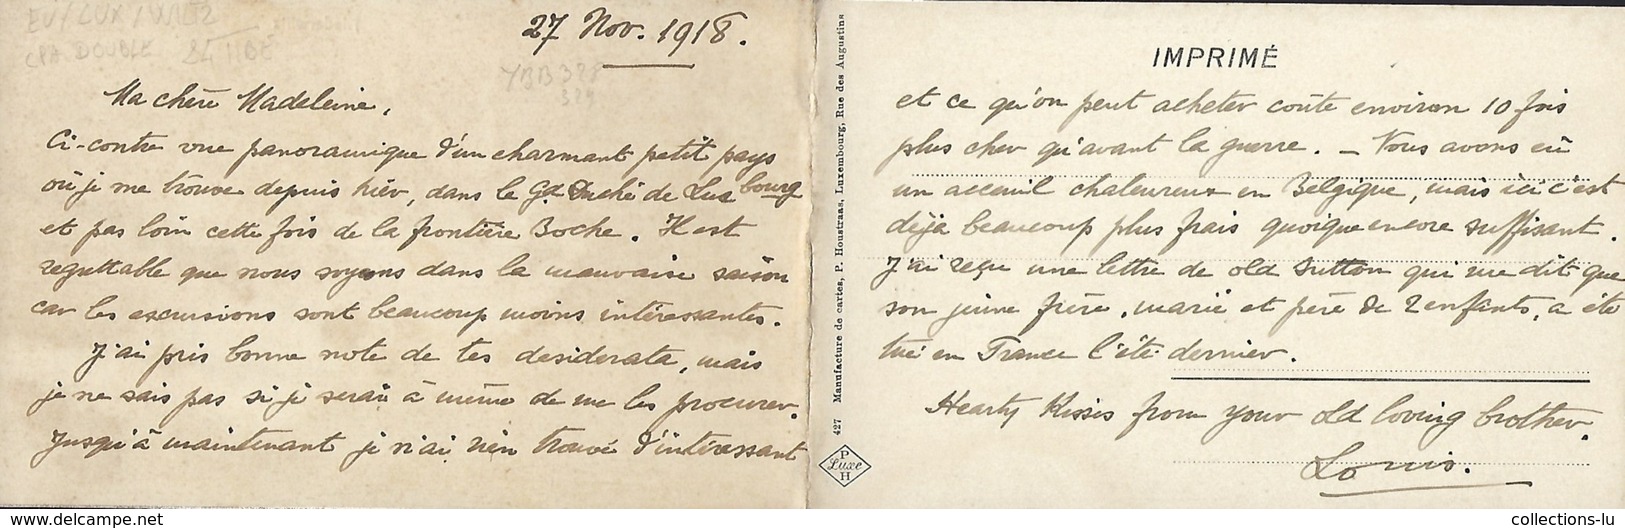 EU/LUX/WILTZ
CPA DOUBLE
27 Nov. 1918.
YBB328
329
Ma chère Madeleine,
Ci-contre vue panoramique d'un charmant petit pays
où je me trouve depuis hier, dans le Gd Duché de Luxbourg
et pas loin cette fois de la frontière Boche. Il est
regrettable que nous soyons dans la mauvaise saison
car les excursions sont beaucoup moins intéressantes.
J'ai pris bonne note de tes desiderata, mais
je ne sais pas si je serai à même de me les procurer.
Jusqu'à maintenant je n'ai rien trouvé d'intéressant
427 Manufacture de cartes, P. Houstraas, Luxembourg, Rue des Augustins
P
Luxe
H
IMPRIMÉ
et ce qu'on peut acheter coûte environ 10 fois
plus cher qu'avant la guerre. – Nous avons eu
un acceuil chaleureux en Belgique, mais ici c'est
déjà beaucoup plus frais quoique encore suffisant.
J'ai reçu une lettre de old Sutton qui me dit que
son jeune frère, marié et père de 2 enfants, a été
tué en France l'été dernier.
Hearty Kisses from your old loving brother.
Louis.
collections-lu